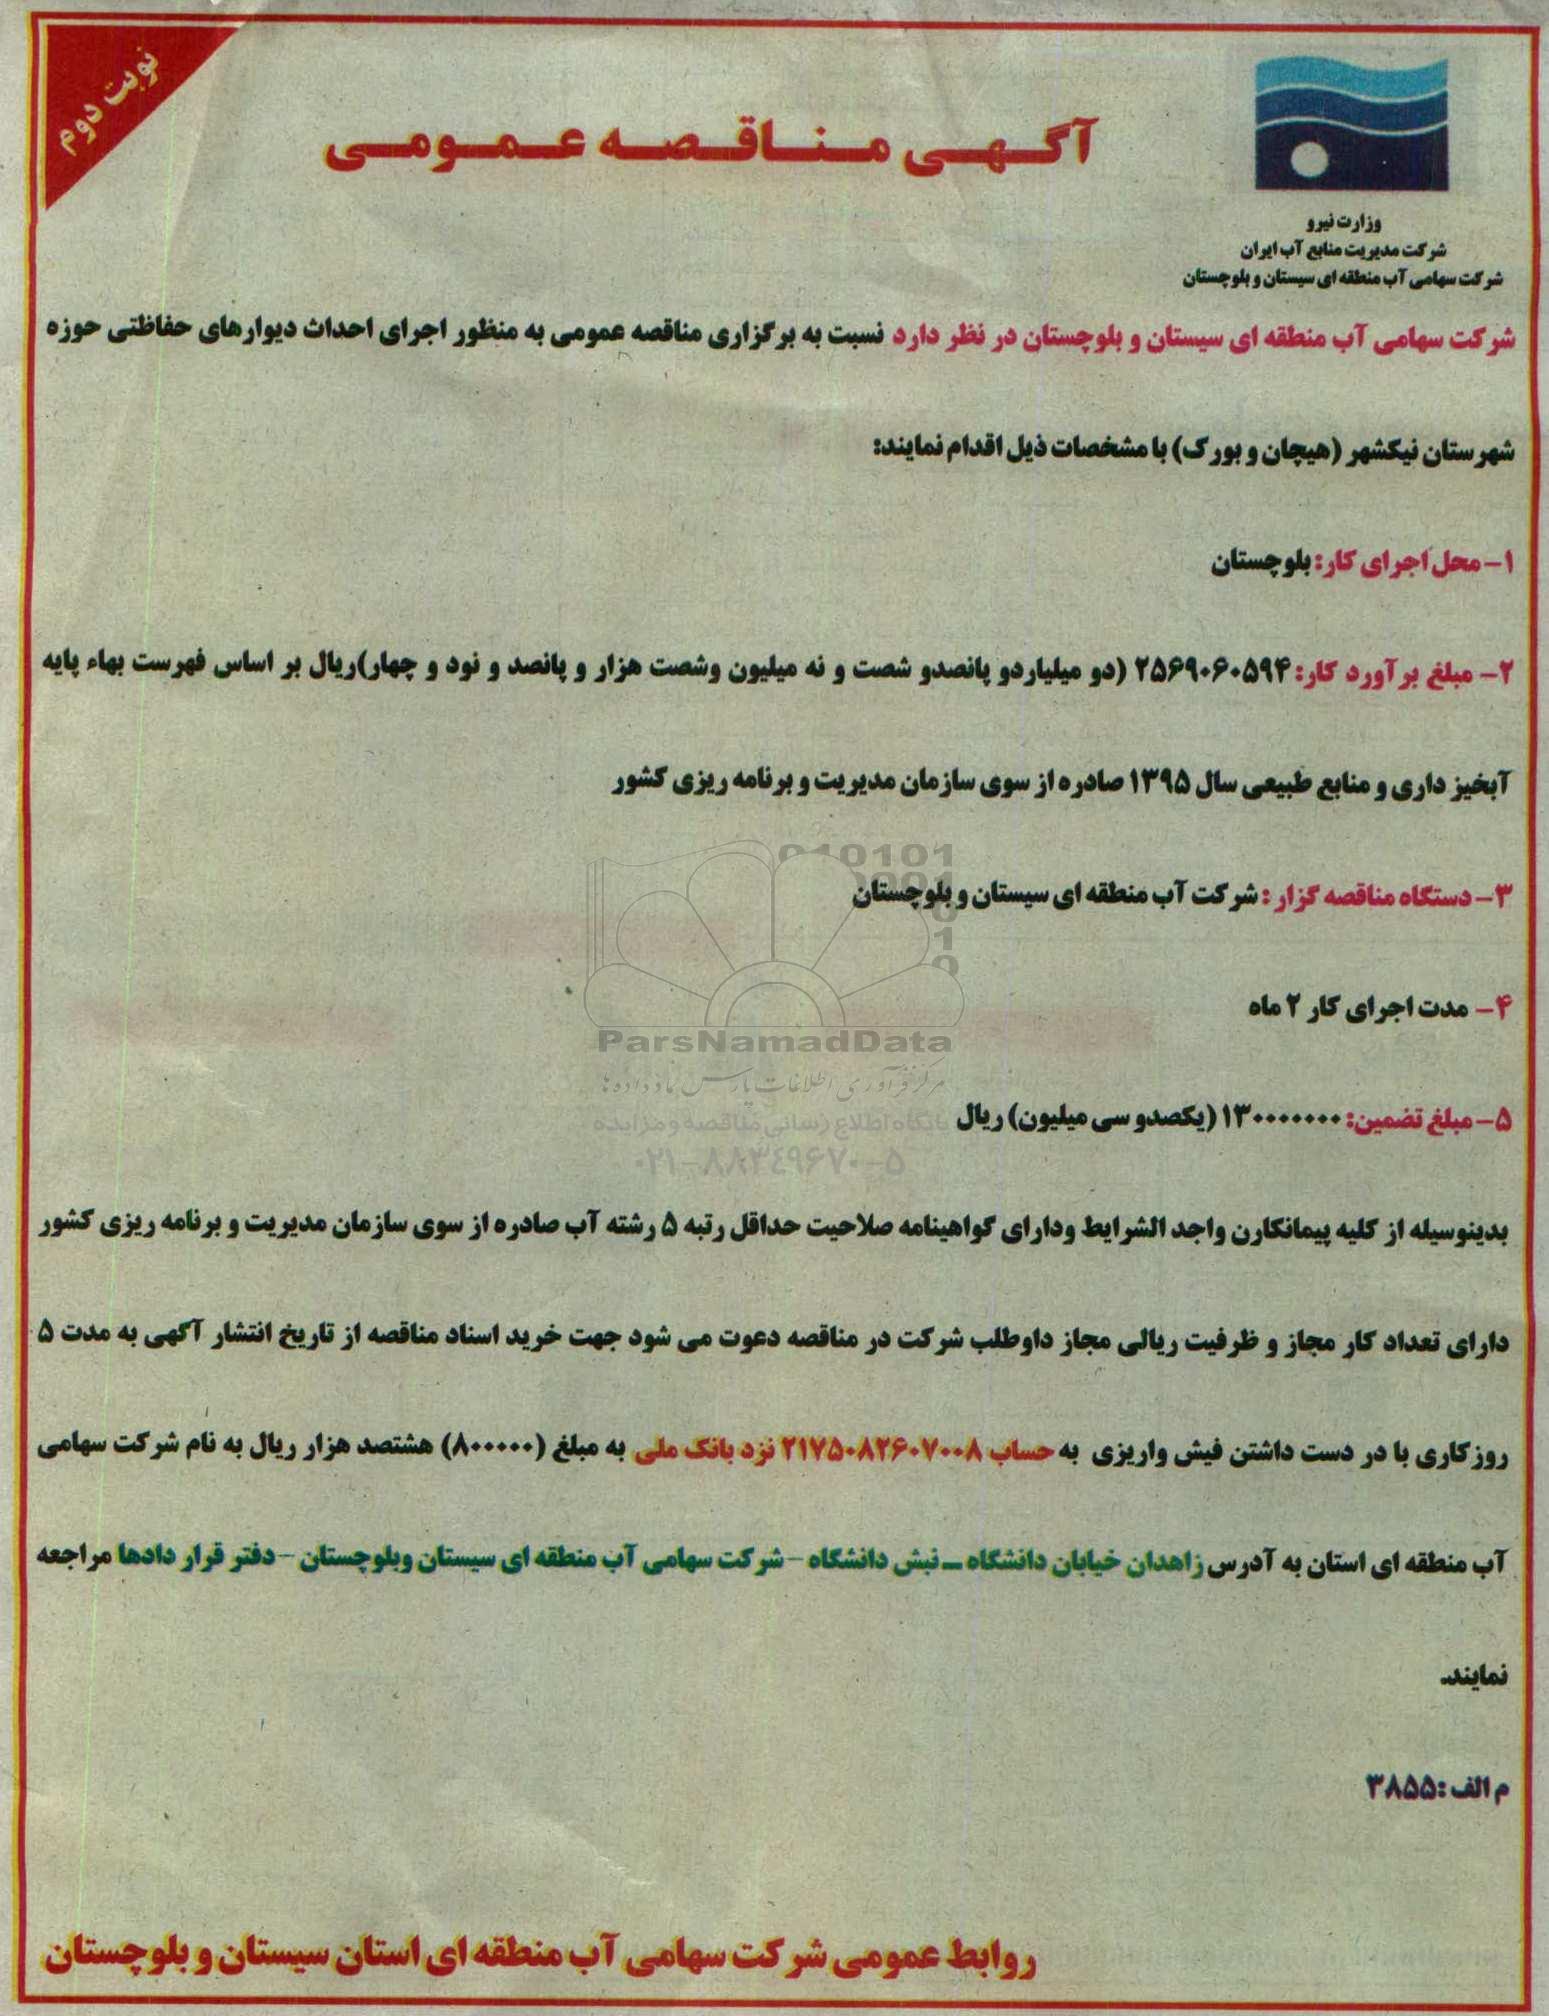 نوبت دوم
آگهی مناقصه عمومی
وزارت نیرو
شرکت مدیریت منابع آب ایران
شرکت سهامی آب منطقه ای سیستان و بلوچستان
شرکت سهامی آب منطقه ای سیستان و بلوچستان در نظر دارد نسبت به برگزاری مناقصه عمومی به منظور اجرای احداث دیوارهای حفاظتی حوزه
شهرستان نیکشهر (هیچان و بورک) با مشخصات ذیل اقدام نمایند:
۱- محل اجرای کار: بلوچستان
۲- مبلغ برآورد کار: ۲۵۶۹۰۶۰۵۹۴ (دو میلیاردو پانصدو شصت و نه میلیون وشصت هزار و پانصد و نود و چهار)ریال بر اساس فهرست بهاء پایه
آبخیز داری و منابع طبیعی سال ۱۳۹۵ صادره از سوی سازمان مدیریت و برنامه ریزی کشور
۳- دستگاه مناقصه گزار : شرکت آب منطقه ای سیستان و بلوچستان
۴- مدت اجرای کار ۲ ماه
۵- مبلغ تضمین: ۱۳۰۰۰۰۰۰۰ (یکصدو سی میلیون) ریال
بدینوسیله از کلیه پیمانکارن واجد الشرایط ودارای گواهینامه صلاحیت حداقل رتبه ۵ رشته آب صادره از سوی سازمان مدیریت و برنامه ریزی کشور
دارای تعداد کار مجاز و ظرفیت ریالی مجاز داوطلب شرکت در مناقصه دعوت می شود جهت خرید اسناد مناقصه از تاریخ انتشار آگهی به مدت ۵
روزکاری با در دست داشتن فیش واریزی به حساب ۲۱۷۵۰۸۲۶۰۷۰۰۸ نزد بانک ملی به مبلغ (۸۰۰۰۰۰) هشتصد هزار ریال به نام شرکت سهامی
آب منطقه ای استان به آدرس زاهدان خیابان دانشگاه – نبش دانشگاه - شرکت سهامی آب منطقه ای سیستان وبلوچستان - دفتر قرار دادها مراجعه
نمایند.
م الف :۳۸۵۵
روابط عمومی شرکت سهامی آب منطقه ای استان سیستان و بلوچستان
ParsNamadData
مرکز فرآوری اطلاعات پارس نماد داده ها
پایگاه اطلاع رسانی مناقصه و مزایده
۰۲۱-۸۸۳۴۹۶۷۰-۵